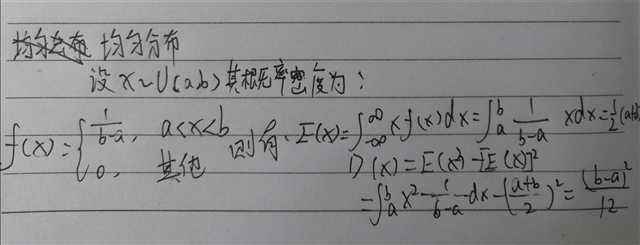 均匀分布 均匀分布
设 X~U(a,b) 其概率密度为:
f(x)={1/(b-a), a<x<b 0, 其他 则有: E(X)=∫_{-∞}^{∞} x f(x) dx = ∫_a^b 1/(b-a) x dx = 1/2 (a+b)
D(X)=E(X²)-[E(X)]²
=∫_a^b x² 1/(b-a) dx - ((a+b)/2)² = (b-a)²/12